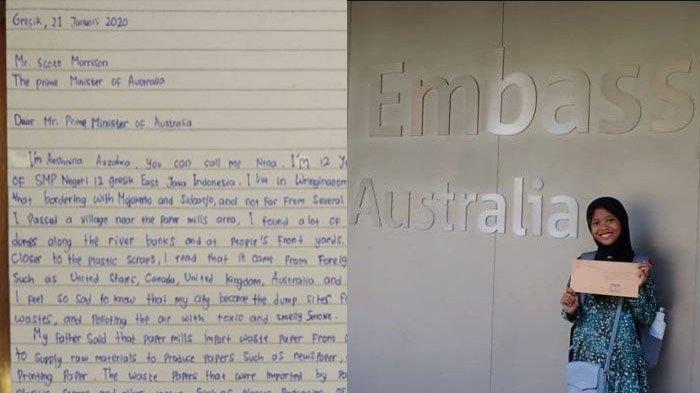 Gresik, 21 Januari 2020
Mr. Scott Morrison
The prime Minister of Australia
Dear Mr. Prime Minister of Australia
I'm Aeshnina Azzahra. You can call me Nina. I'm 12 Ye
OF SMP Negeri 12 gresik East Java Indonesia. I live in Wringinanom
that bordering with Mojokerto and Sidoarjo, and not far From Several
I Passed a village near the paper mills area, I found a lot of
dumps along the river banks and at People's Front yards.
Closer to the plastic scraps, I read that it came From Foreig
Such as United States, Canada, United Kingdom, Australia and
I Feel so Sad to know that my city become the dump sites F
wastes, and Polloting the air with toxic and smelly smoke.
My Father Said that Paper mills Import waste Paper From
to Supply raw materials to Produce Papers Such as newspaper,
Printing Paper. The waste Papers that were imported by Pa
Embass
Australia